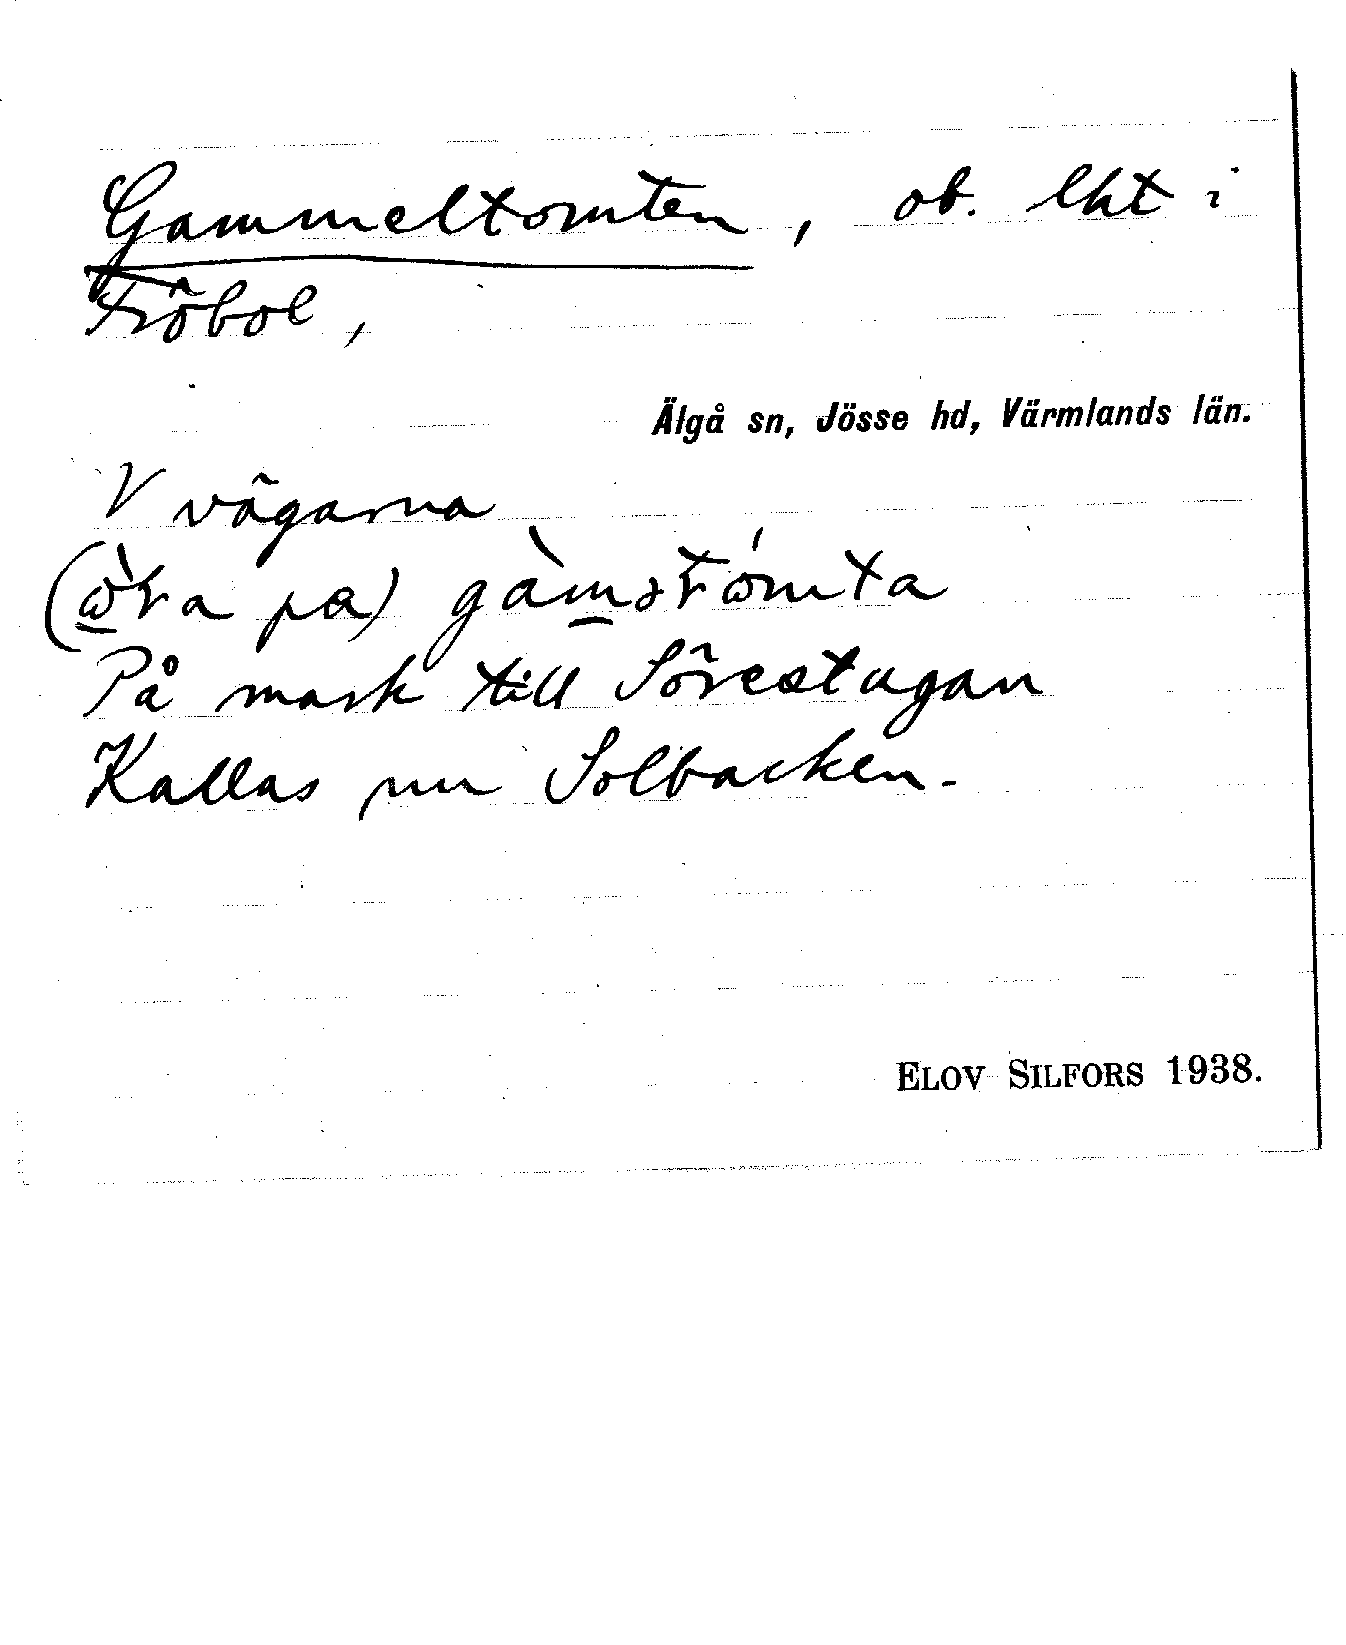 Gammeltomten, ob. lht i
Fröbol,
Älgå sn, Jösse hd, Värmlands län.
V vägarna
pa)
På mark till Sörestugan
Kallas nu Solbacken.
ELOV SILFORS 1938.